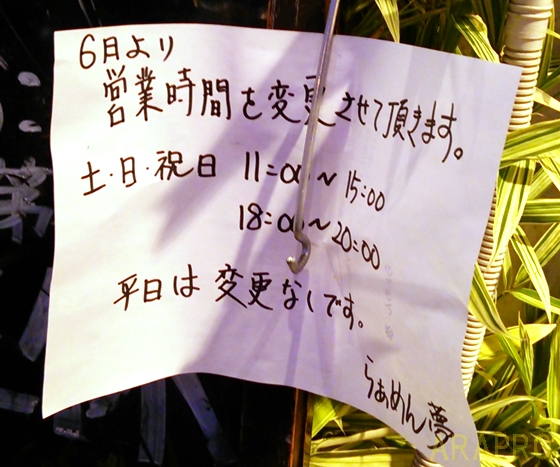 6月より
営業時間を変更させて頂きます。
土・日・祝日 11:00～15:00
18:00～20:00
平日は変更なしです。
らぁめん夢
ARAPRO